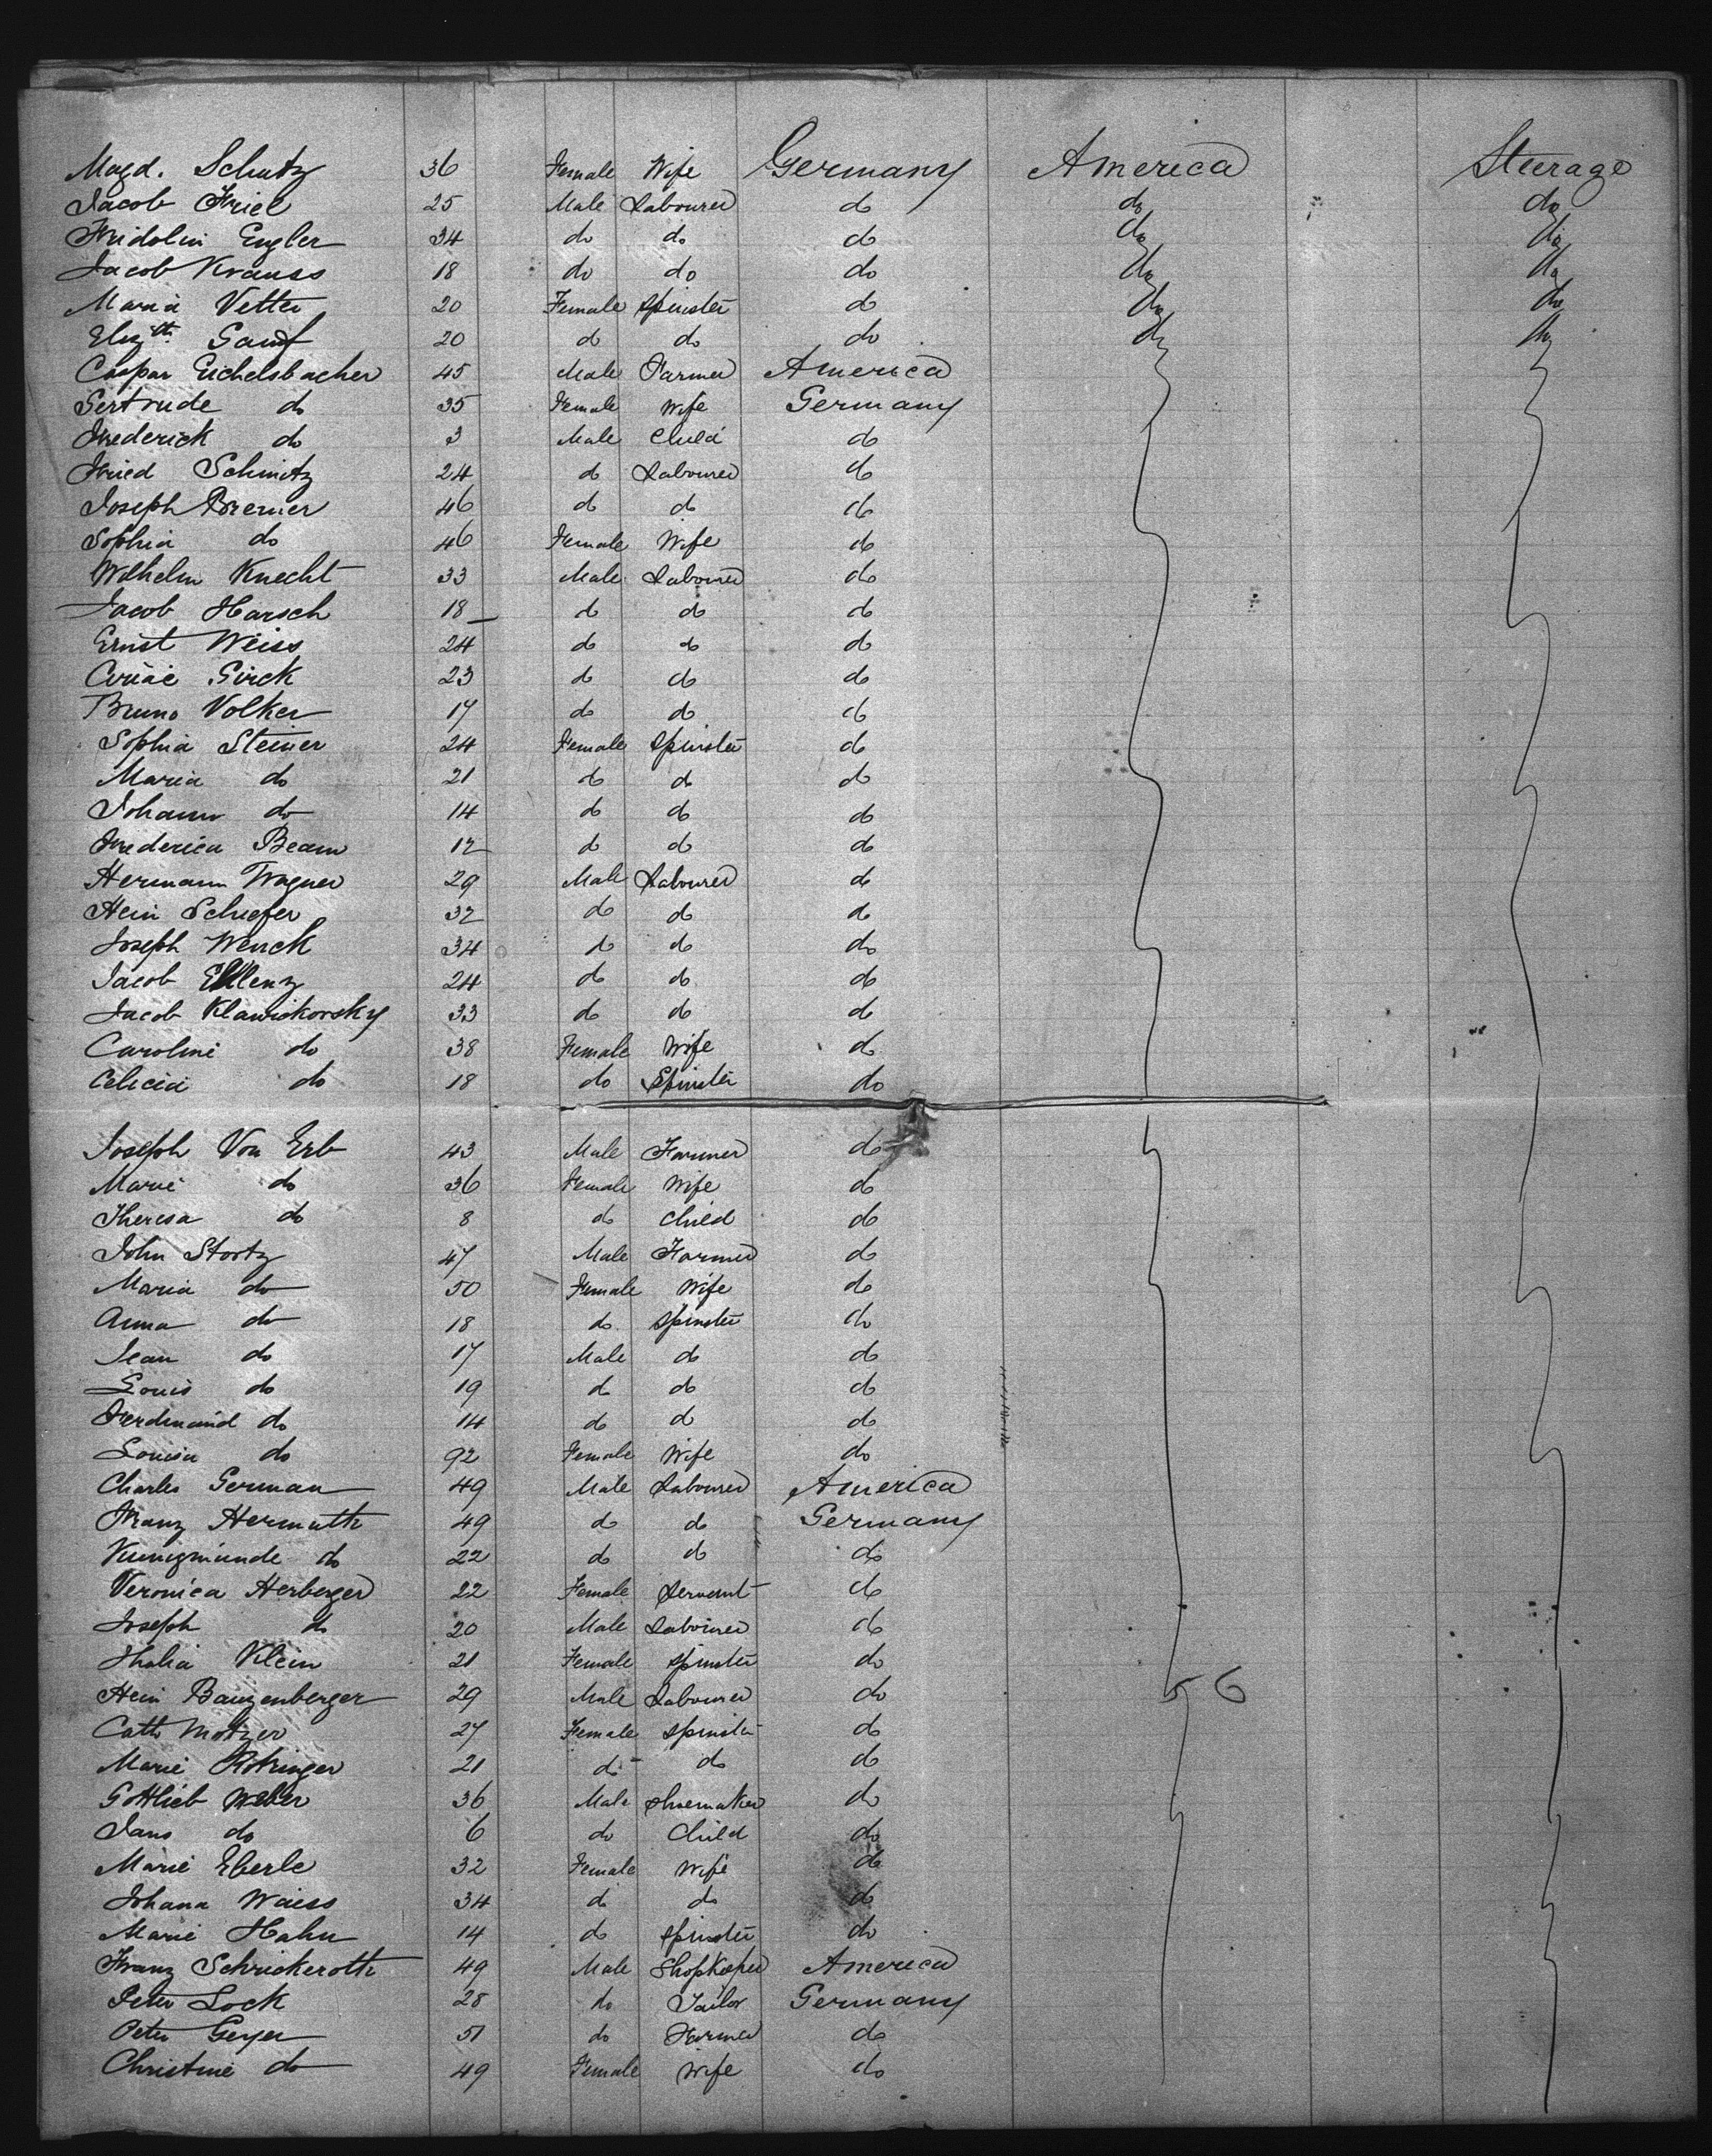 Magd. Schutz 36 Female Wife Germany America Steerage
Jacob Friel 25 Male Labourer do do do
Fridolin Engler 34 do do do do do
Jacob Krauss 18 do do do do do
Maria Vetter 20 Female Spinster do do do
Elizth 20 do do do do do
Caspar Eichelsbacher 45 Male Farmer America
Gertrude do 35 Female Wife Germany
Frederick do 3 Male Child do
Fried Schmitz 24 do Labourer do
Joseph Bremer 46 do do do
Sophia do 46 Female Wife do
Wilhelm Knecht 33 Male Labourer do
Jacob Harsch 18 do do do
Ernst Weiss 24 do do do
Girck 23 do do do
Bruno Volker 17 do do do
Sophia Steiner 24 Female Spinster do
Maria do 21 do do do
Johann do 14 do do do
Frederica Beam 12 do do do
Hermann Wagner 29 Male Labourer do
Hein Schiefer 32 do do do
Joseph Wenck 34 do do do
Jacob Ellenz 24 do do do
Jacob Klawikorsky 33 do do do
Caroline do 38 Female Wife do
Celicia do 18 do Spinster do
Joseph Von Erb 43 Male Farmer do
Marie do 36 Female Wife do
Theresa do 8 do Child do
John Stortz 47 Male Farmer do
Maria do 50 Female Wife do
Anna do 18 do Spinster do
Jean do 17 Male do do
Louis do 19 do do do
Ferdinand do 14 do do do
Louisa do 92 Female Wife do
Charles German 49 Male Labourer America
Franz Hermuth 49 do do Germany
Kunigmunde do 22 do do do
Veronica Herberger 22 Female Servant do
Joseph do 20 Male Labourer do
Thalia Klein 21 Female Spinster do
Hein Banzenberger 29 Male Labourer do 56
Cath Motzer 27 Female Spinster do
Marie 21 do do do
Gottlieb Weber 36 Male Shoemaker do
Jans do 6 do Child do
Marie Eberle 32 Female Wife do
Johana Waiss 34 do do do
Marie Hahn 14 do Spinster do
Franz Schrickeroth 49 Male Shopkeeper America
Peter Lock 28 do Tailor Germany
Peter Geyer 51 do Farmer do
Christine do 49 Female Wife do